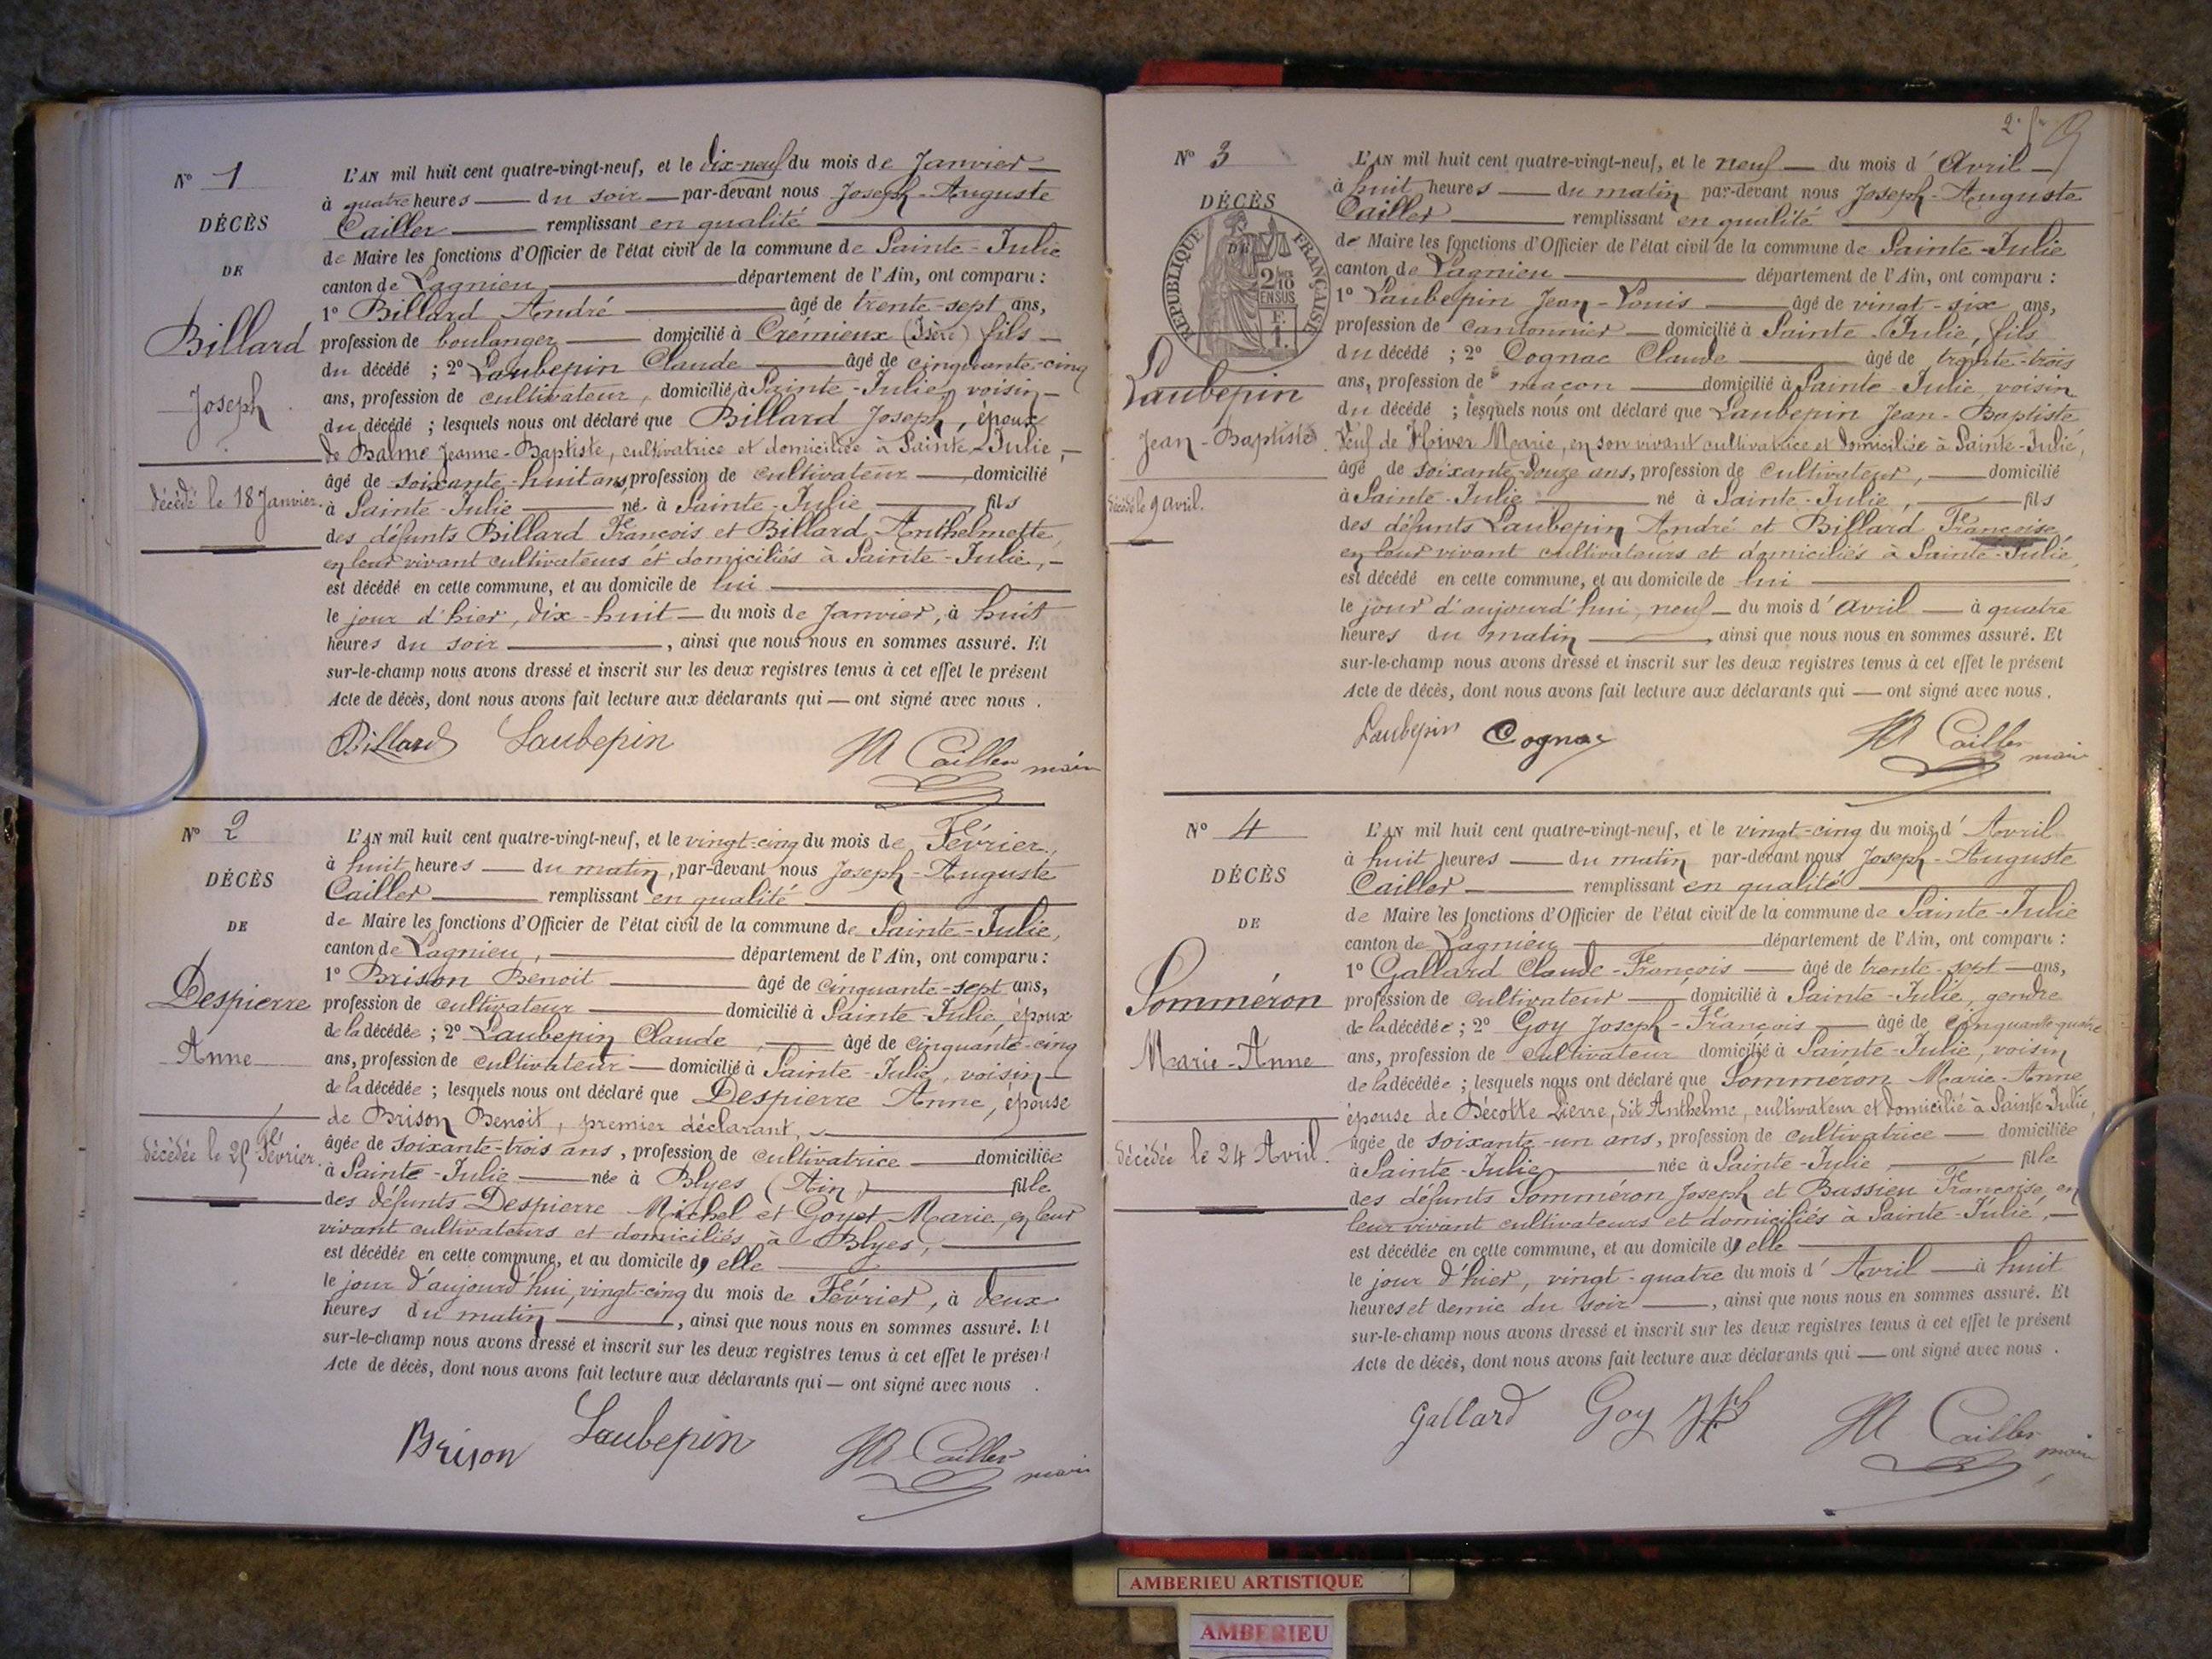 N° 1
DÉCÈS
DE
Billard
Joseph
décédé le 18 Janvier.
L'AN mil huit cent quatre-vingt-neuf, et le dix-neuf du mois de Janvier
à quatre heures du soir par-devant nous Joseph-Auguste
Cailler remplissant en qualité
de Maire les fonctions d'Officier de l'état civil de la commune de Sainte-Julie
canton de Lagnieu département de l'Ain, ont comparu :
1° Billard André âgé de trente-sept ans,
profession de boulanger domicilié à Crémieux (Isère) fils
du décédé ; 2° Laubepin Claude âgé de cinquante-cinq
ans, profession de cultivateur, domicilié à Sainte-Julie, voisin
du décédé ; lesquels nous ont déclaré que Billard Joseph, époux
de Balme Jeanne-Baptiste, cultivatrice et domiciliée à Sainte-Julie,
âgé de soixante-huit ans, profession de cultivateur, domicilié
à Sainte-Julie né à Sainte-Julie, fils
des défunts Billard François et Billard Anthelmette,
en leur vivant cultivateurs et domiciliés à Sainte-Julie,
est décédé en cette commune, et au domicile de lui
le jour d'hier, dix-huit du mois de Janvier, à huit
heures du soir, ainsi que nous nous en sommes assuré. Et
sur-le-champ nous avons dressé et inscrit sur les deux registres tenus à cet effet le présent
Acte de décès, dont nous avons fait lecture aux déclarants qui ont signé avec nous.
Billard Laubepin Cailler maire
N° 2
DÉCÈS
DE
Despierre
Anne
décédée le 25 Février.
L'AN mil huit cent quatre-vingt-neuf, et le vingt-cinq du mois de Février,
à huit heures du matin, par-devant nous Joseph-Auguste
Cailler remplissant en qualité
de Maire les fonctions d'Officier de l'état civil de la commune de Sainte-Julie,
canton de Lagnieu, département de l'Ain, ont comparu :
1° Brison Benoit âgé de cinquante-sept ans,
profession de cultivateur domicilié à Sainte-Julie, époux
de la décédée ; 2° Laubepin Claude, âgé de cinquante-cinq
ans, profession de cultivateur domicilié à Sainte-Julie, voisin
de la décédée ; lesquels nous ont déclaré que Despierre Anne, épouse
de Brison Benoit, premier déclarant,
âgée de soixante-trois ans, profession de cultivatrice domiciliée
à Sainte-Julie née à Blyes (Ain) fille
des défunts Despierre Michel et Goyet Marie, en leur
vivant cultivateurs et domiciliés à Blyes,
est décédée en cette commune, et au domicile d'elle
le jour d'aujourd'hui, vingt-cinq du mois de Février, à deux
heures du matin, ainsi que nous nous en sommes assuré. Et
sur-le-champ nous avons dressé et inscrit sur les deux registres tenus à cet effet le présent
Acte de décès, dont nous avons fait lecture aux déclarants qui ont signé avec nous.
Brison Laubepin Cailler maire
N° 3
DÉCÈS
DE
RÉPUBLIQUE FRANÇAISE
2/10 EN SUS
F. 1.
Laubepin
Jean-Baptiste
décédé le 9 avril.
L'AN mil huit cent quatre-vingt-neuf, et le neuf du mois d'Avril
à huit heures du matin par-devant nous Joseph-Auguste
Cailler remplissant en qualité
de Maire les fonctions d'Officier de l'état civil de la commune de Sainte-Julie
canton de Lagnieu département de l'Ain, ont comparu :
1° Laubepin Jean-Louis âgé de vingt-six ans,
profession de cantonnier domicilié à Sainte-Julie, fils
du décédé ; 2° Cognac Claude âgé de trente-trois
ans, profession de maçon domicilié à Sainte-Julie, voisin
du décédé ; lesquels nous ont déclaré que Laubepin Jean-Baptiste,
Veuf de Hiver Marie, en son vivant cultivatrice et domiciliée à Sainte-Julie,
âgé de soixante-douze ans, profession de cultivateur, domicilié
à Sainte-Julie né à Sainte-Julie, fils
des défunts Laubepin André et Billard Françoise,
en leur vivant cultivateurs et domiciliés à Sainte-Julie,
est décédé en cette commune, et au domicile de lui
le jour d'aujourd'hui, neuf du mois d'avril à quatre
heures du matin, ainsi que nous nous en sommes assuré. Et
sur-le-champ nous avons dressé et inscrit sur les deux registres tenus à cet effet le présent
Acte de décès, dont nous avons fait lecture aux déclarants qui ont signé avec nous.
Laubepin Cognac Cailler maire
N° 4
DÉCÈS
DE
Somméron
Marie-Anne
décédée le 24 Avril.
L'AN mil huit cent quatre-vingt-neuf, et le vingt-cinq du mois d'Avril
à huit heures du matin par-devant nous Joseph-Auguste
Cailler remplissant en qualité
de Maire les fonctions d'Officier de l'état civil de la commune de Sainte-Julie
canton de Lagnieu département de l'Ain, ont comparu :
1° Gallard Claude-François âgé de trente-sept ans,
profession de cultivateur domicilié à Sainte-Julie, gendre
de la décédée ; 2° Goy Joseph-François âgé de cinquante-quatre
ans, profession de cultivateur domicilié à Sainte-Julie, voisin
de la décédée ; lesquels nous ont déclaré que Somméron Marie-Anne
épouse de Bécotte Pierre, dit Anthelme, cultivateur et domicilié à Sainte-Julie,
âgée de soixante-un ans, profession de cultivatrice domiciliée
à Sainte-Julie née à Sainte-Julie, fille
des défunts Somméron Joseph et Bassieu Françoise, en
leur vivant cultivateurs et domiciliés à Sainte-Julie,
est décédée en cette commune, et au domicile d'elle
le jour d'hier, vingt-quatre du mois d'Avril à huit
heures et demie du soir, ainsi que nous nous en sommes assuré. Et
sur-le-champ nous avons dressé et inscrit sur les deux registres tenus à cet effet le présent
Acte de décès, dont nous avons fait lecture aux déclarants qui ont signé avec nous.
Gallard Goy Cailler maire
AMBERIEU ARTISTIQUE
AMBERIEU